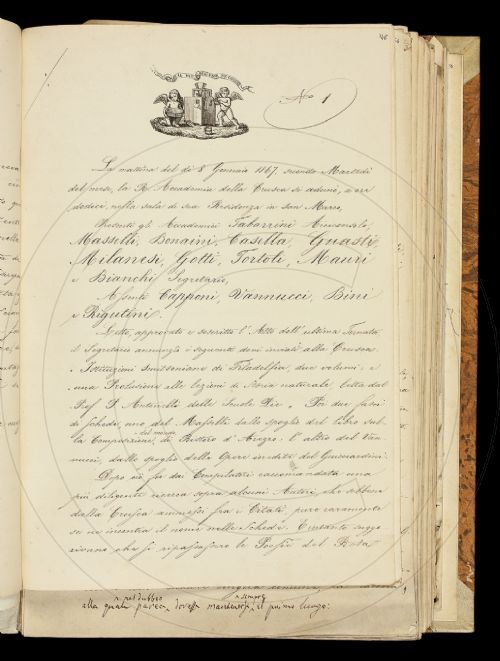 46
IL PIÙ BEL FIOR NE COGLIE
N.º 1
La mattina del dì 8 Gennaio 1867, secondo Martedì
del mese, la R. Accademia della Crusca si adunò, a ore
dodici, nella sala di sua Residenza in San Marco,
Presenti gli Accademici Tabarrini Arciconsolo,
Masselli, Bonaini, Casella, Guasti,
Milanesi, Gotti, Tortoli, Mauri
e Bianchi Segretario,
Assenti Capponi, Vannucci, Bini
e Rigutini.
Letto, approvato e soscritto l'Atto dell'ultima Tornata
il Segretario annunzia i seguenti doni inviati alla Crusca.
Istituzioni Smitsoniane di Filadelfia, due volumi: e
una Prolusione alle lezioni di Storia naturale letta dal
Prof. P. Antonelli delle Scuole Pie. Poi due fasci
di Schede, uno del Masselli dallo spoglio del libro sul-
la Composizione del mondo di Ristoro d'Arezzo: l'altro del Van-
nucci, dallo spoglio delle Opere inedite del Guicciardini.
Dopo ciò fu dai Compilatori raccomandata una
più diligente ricerca sopra alcuni Autori, che sebbene
dalla Crusca ammessi fra i Citati, pure raramente
se ne incontra il nome nelle Schede. E intanto sugge-
rivano che si ripassassero le Poesie del Reda
n pas dubbio
n sempre
alla quale pareva, dovesse mantenersi, il primo luogo: